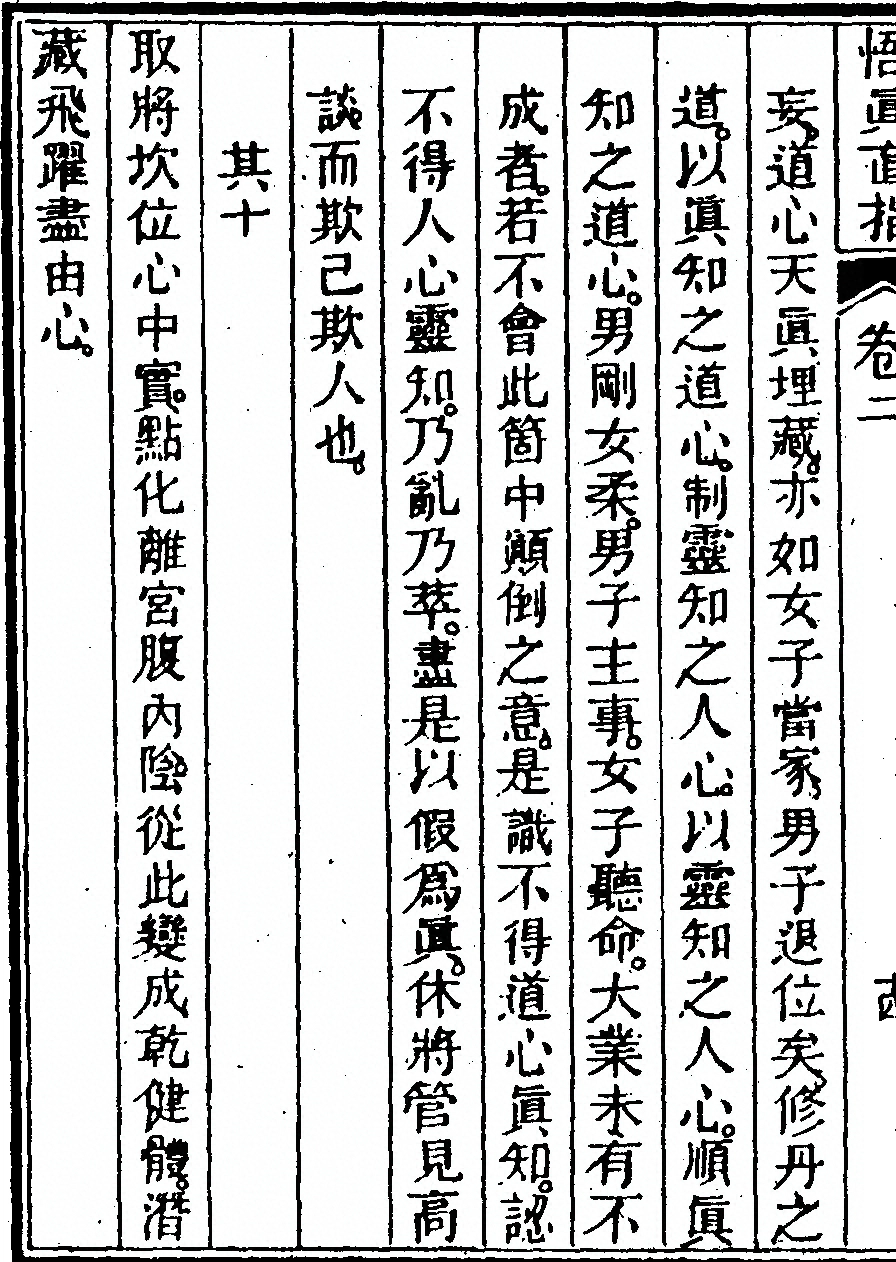 悟眞直指 卷二
妄。道心天眞埋藏。亦如女子當家。男子退位矣。修丹之
道。以眞知之道心。制靈知之人心。以靈知之人心。順眞
知之道心。男剛女柔。男子主事。女子聽命。大業未有不
成者。若不會此箇中顚倒之意。是識不得道心眞知。認
不得人心靈知。乃亂乃萃。盡是以假爲眞。休將管見高
談而欺己欺人也。
其十
取將坎位心中實。點化離宮腹內陰。從此變成乾健體。潛
藏飛躍盡由心。